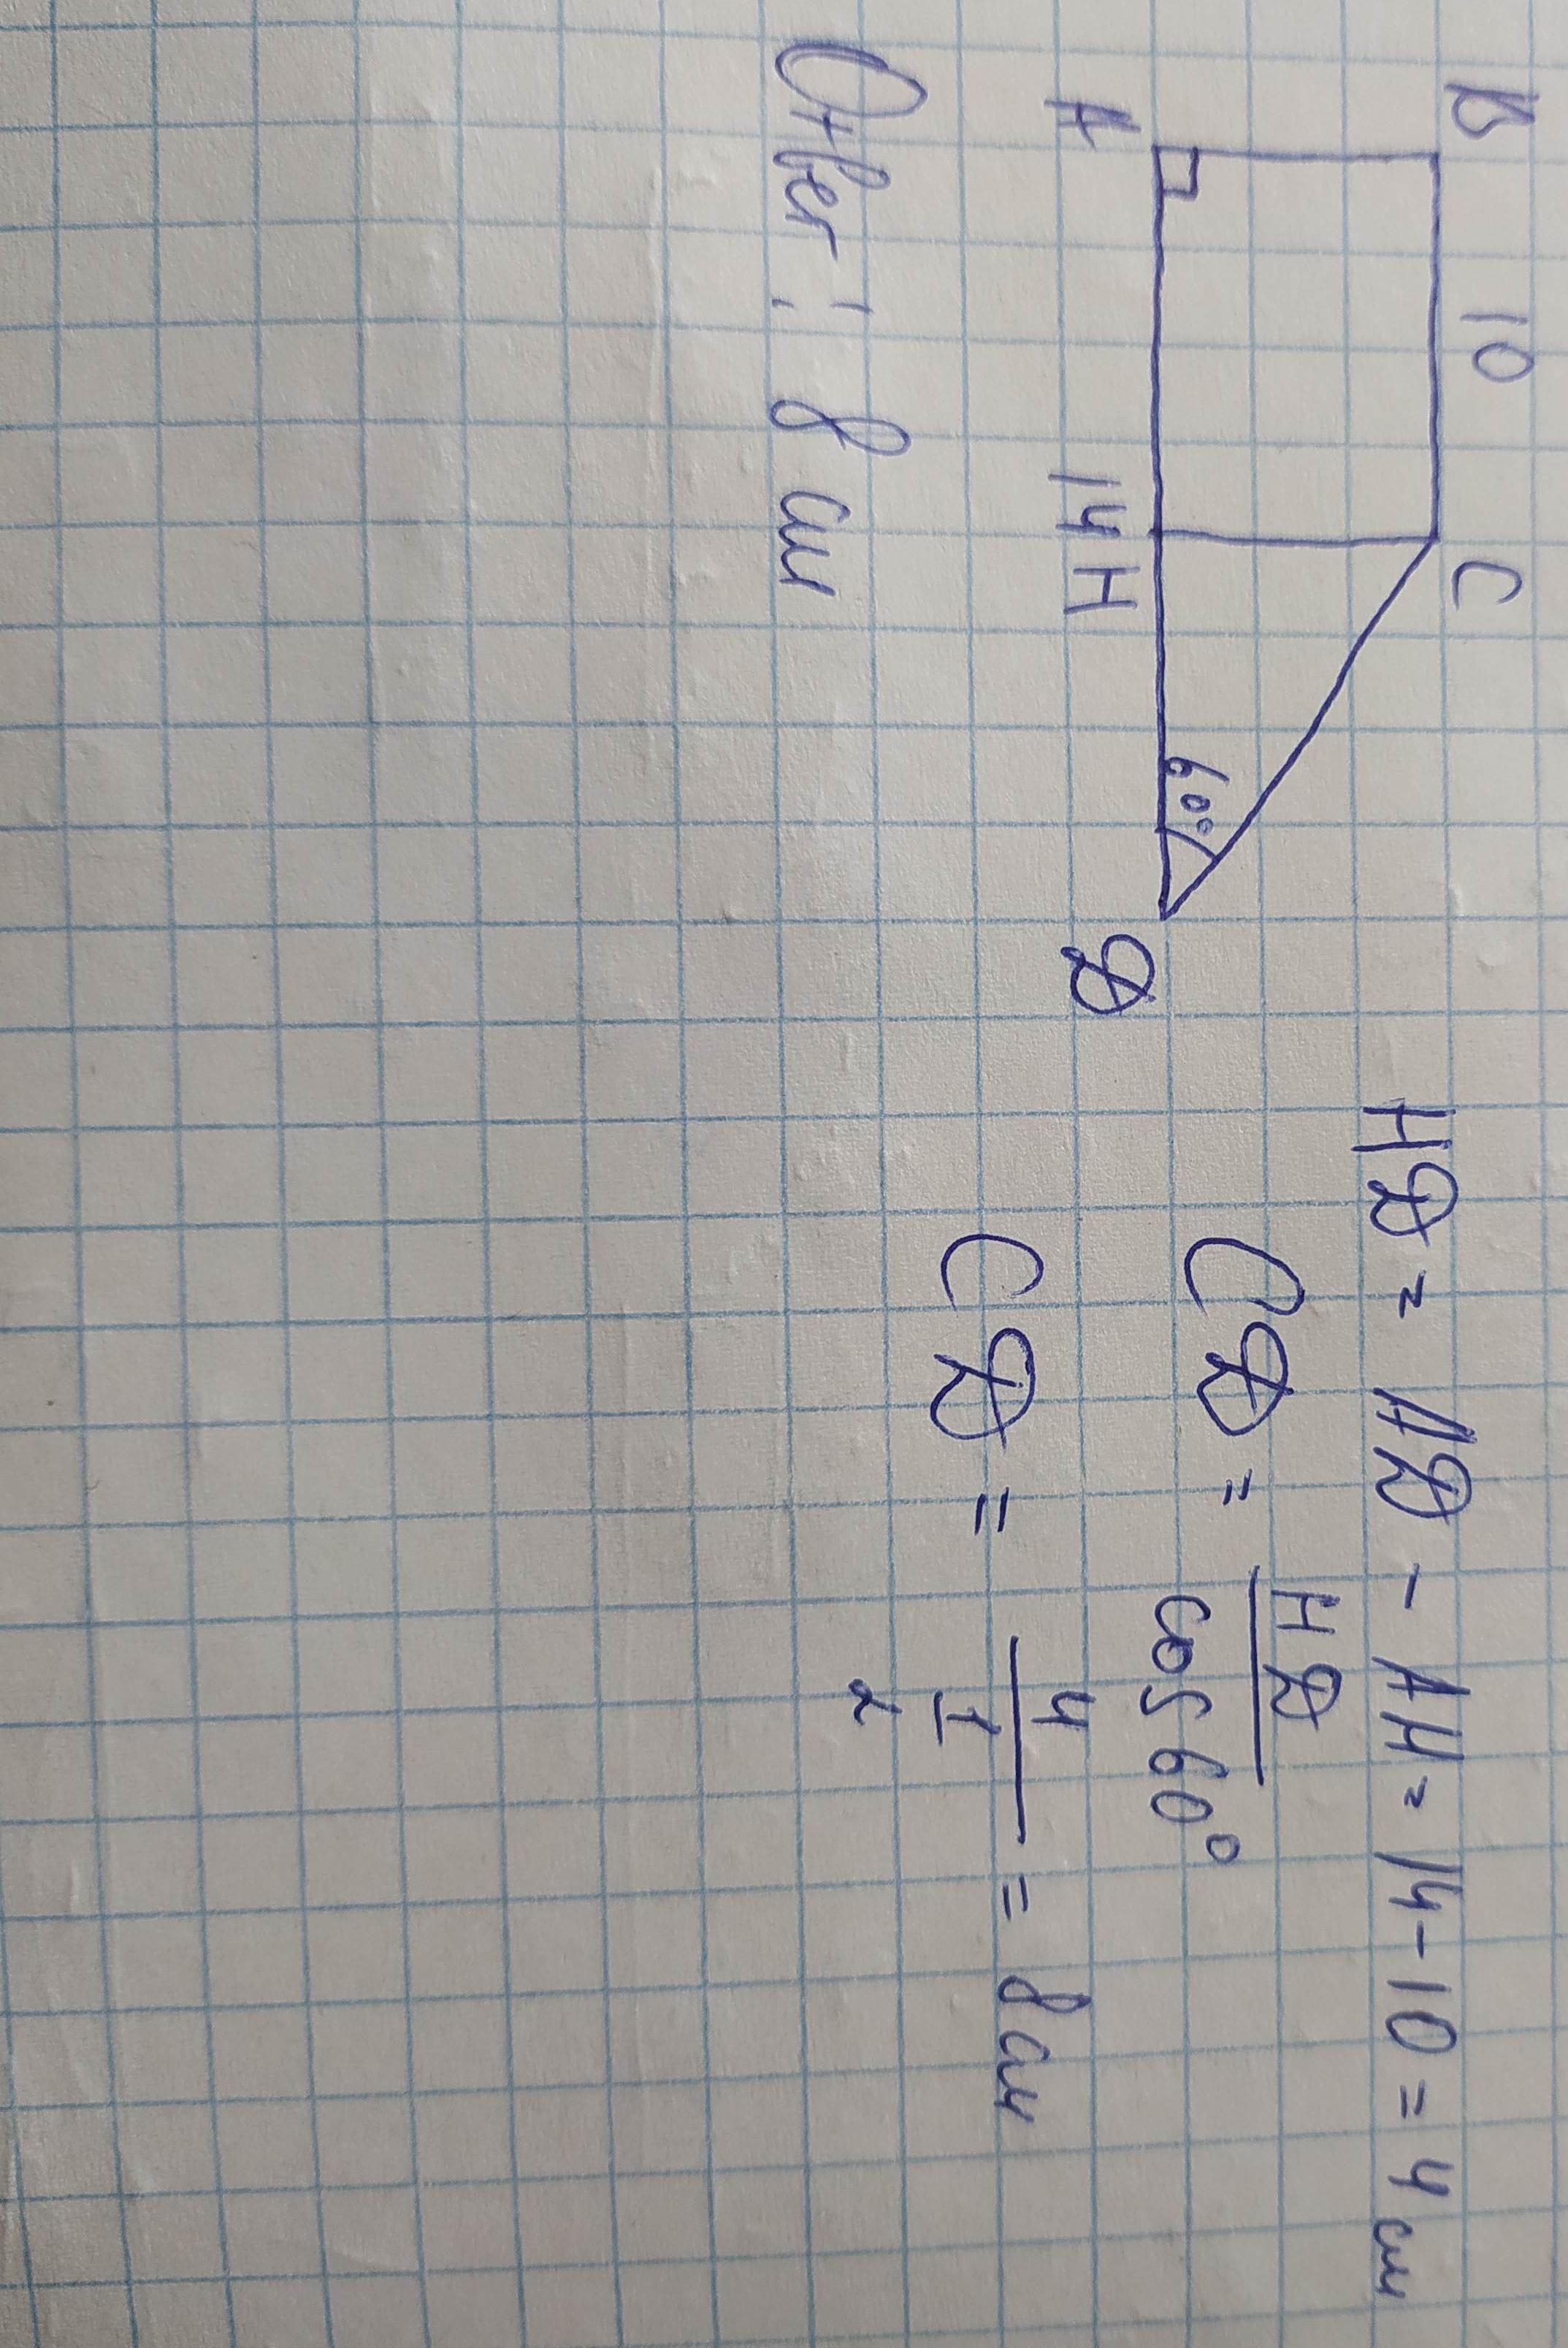 B 10 C
60°
A 14 H D
HD = AD - AH = 14 - 10 = 4 см
CD = HD / cos 60°
CD = 4 / 1/2 = 8 см
Ответ: 8 см